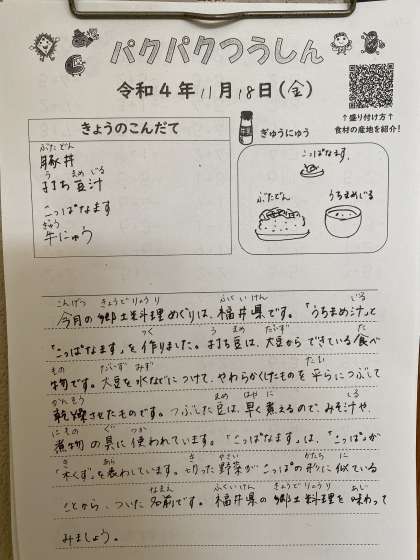 パクパクつうしん
令和4年11月18日(金)
↑盛り付け方↑
食材の産地を紹介!
きょうのこんだて
ぶたどん
豚丼
う まめ じる
打ち豆汁
こっぱなます
ぎゅう
牛にゅう
ぎゅうにゅう
こっぱなます
ぶたどん
うちまめじる
こんげつ きょうどりょうり ふくいけん じる
今月の郷土料理めぐりは、福井県です。「うちまめ汁」と
つく う まめ だいず た
「こっぱなます」を作りました。打ち豆は、大豆からできている食べ
もの だいず みず たい
物です。大豆を水などにつけて、やわらかくしたものを平らにつぶして
かんそう まめ はや に しる
乾燥させたものです。つぶした豆は、早く煮えるので、みそ汁や、
にもの ぐ つか
煮物の具に使われています。「こっぱなます」は、「こっぱ」が
き あら き やさい かたち に
「木くず」を表わしています。切った野菜がこっぱの形に似ている
なまえ ふくいけん きょうどりょうり あじ
ことから、ついた名前です。福井県の郷土料理を味わって
みましょう。